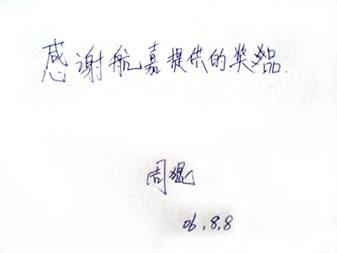 感谢航嘉提供的奖品.
周
06.8.8